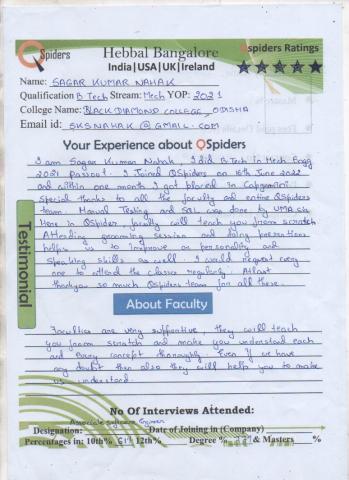 QSpiders
Hebbal Bangalore
India|USA|UK|Ireland
Qspiders Ratings
Name: SAGAR KUMAR NAHAK
Qualification B Tech Stream: Mech YOP: 2021
College Name: BLACK DIAMOND COLLEGE, ODISHA
Email id: SKSNAHAK @ GMAIL.COM
Your Experience about QSpiders
I am Sagar Kumar Nahak, I did B.Tech in Mech Engg
2021 Passout. I Joined QSpiders on 16th June 2022
and within one month I got placed in Capgemini.
Special thanks to all the faculty and entire QSpiders
team. Manual Testing and SQL was done by UMA
Here in QSpider, faculty will teach you from scratch
Attending grooming session and doing
helps us to improve on personality and
speaking skills as well. I would request every
one to attend the classes regularly. Atlast
thankyou so much QSpiders team for all these.
Testimonial
About Faculty
Faculties are very supportive, they will teach
you from scratch and make you understand each
and Every concept thoroughly. Even if we have
any doubt then also they will help you to make
us understand.
No Of Interviews Attended:
Associate Software Engineer
Designation: Date of Joining in (Company)
Percentages in: 10th% 12th% Degree % & Masters %